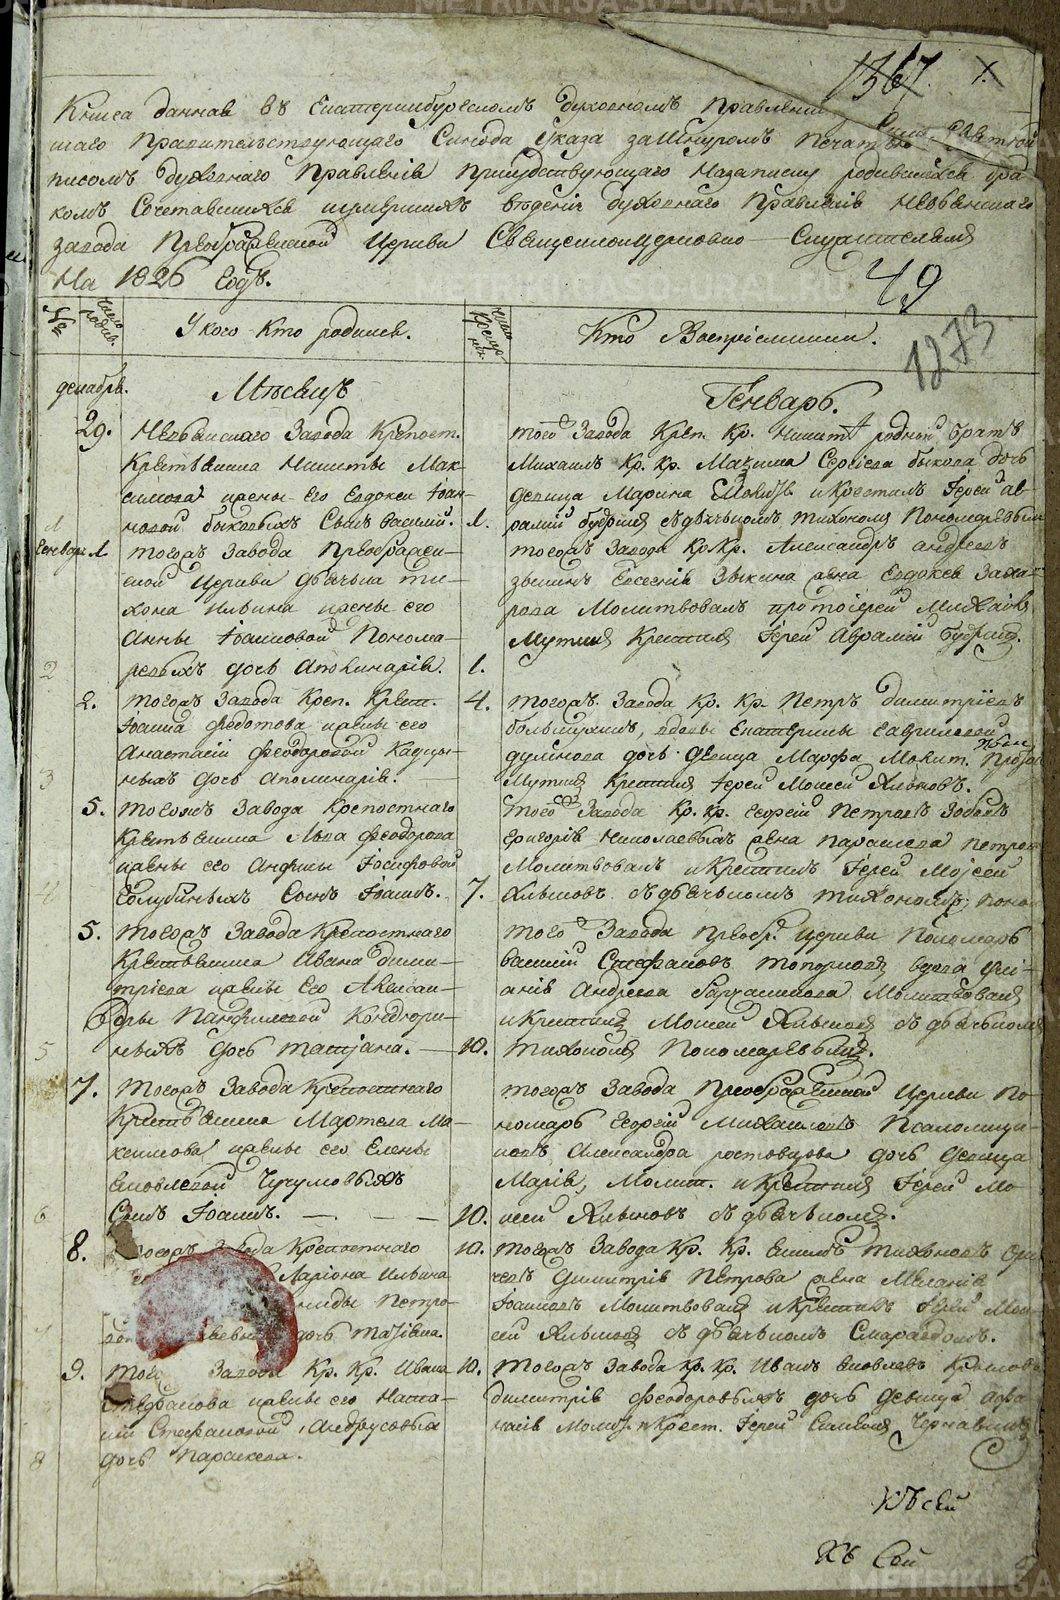 METRIKI.GASO-URAL.RU
1367. 1.
Книга данная въ Екатеринбургскомъ Духовномъ Правлении
шаго Правительствующаго Синода Указа зашнуромъ Печатью
писомъ Духовнаго Правленія Присудствующаго Назаписку родившихся бра
комъ Сочетавшихся иумершихъ вѣденіи Духовнаго Правленія Невьянскаго
завода Преображенской Церкви Священноицерковно-Служителямъ
На 1826 Годъ.
49
1273
№ Число родив.
У кого Кто родился.
Число Крещенія
Кто Воспріемники.
декабрь.
Мѣсяцъ
Генварь.
29. Невьянскаго Завода Крепост.
Крестьянина Никиты Мак-
симова жены Его Евдокеи Іоан-
новой Быковыхъ Сынъ Василій. 1.
того Завода Креп. Кр. Никиты родный братъ
Михаилъ Кр. Кр. Максима Сергіева Быкова дочь
девица Марина Молитв. икрестилъ Іерей Ав-
рамій Будринъ съдьячькомъ Тихономъ Пономаревымъ
1
Генваря 1 тогожъ Завода Преображен-
ской Церкви дьячька Ти-
хона Ильина жены его
Анны Іоанновой Понома-
ревыхъ дочь Аполинарія. 1.
тогожъ Завода Кр. Кр. Александръ Андреевъ
Евсевія Зыкина жена Евдокея Заха-
рова Молитвовалъ протоіерей Михаилъ
Мутинъ Крестилъ Іерей Аврамій Будринъ.
2
2. тогожъ Завода Креп. Крест.
Іоанна Федотова жены его
Анастасіи Феодоровой
дочь Аполинарія. 4.
тогожъ Завода Кр. Кр. Петръ Димитріевъ
вдовы Екатерины Гавриловой
дочь девица Марфа Молит.
Мутинъ Крестилъ Іерей Моисей Яльцовъ.
3
5. Тогожъ Завода Крепостнаго
Крестьянина Льва Феодорова
жены его Анфисы Іосифовой
Голубиныхъ Сынъ Іоаннъ. 7.
Того Завода Кр. Кр. Георгій Петровъ
Григорія Николаевыхъ жена Параскева Петрова
Молитвовалъ икрестилъ Іерей Мойсей
Яльцовъ съдьячькомъ Тихономъ Поно
4
5. Тогожъ Завода Крепостнаго
Крестьянина Ивана Дими-
тріева жены Его Алексан-
дры Панфиловой Кондюри-
ныхъ дочь Татіана. 10.
того Завода Преобр. Церкви Пономарь
Василій Стефановъ Топорковъ вдова
Андреева Молитвовалъ
икрестилъ Моисей Яльцовъ съдьячькомъ
Тихономъ Пономаревымъ.
5
7. Тогожъ Завода Крепостнаго
Крестьянина Мартела Ма-
ксимова жены его Елены
Яковлевой Чучумовыхъ
Сынъ Іоаннъ. 10.
тогожъ Завода Преображенской Церкви По-
номарь Георгій Михаиловъ
Александра Ростовцова дочь девица
Марія, Молит. икрестилъ Іерей Мо
исей Яльцовъ съдьячькомъ.
6
8. Тогожъ Завода Крепостнаго
Ларіона Ильина
Петро-
дочь Татіана. 10.
Тогожъ Завода Кр. Кр. Екимъ Тихоновъ
Димитрія Петрова жена Меланія
Іоаннова Молитвовалъ икрестилъ Іерей Мои
сей Яльцовъ съдьячькомъ Смарагдомъ.
7
9. Того Завода Кр. Кр. Ивана
Стефанова жены его Ната-
ліи Стефановой Андрусовыхъ
дочь Параскева. 10.
Тогожъ Завода Кр. Кр. Иванъ Яковлевъ
Димитрія Феодоровыхъ дочь девица
Молит. икрест. Іерей Симеонъ Чернавинъ
8
Къ сей
Къ Сей
METRIKI.GA